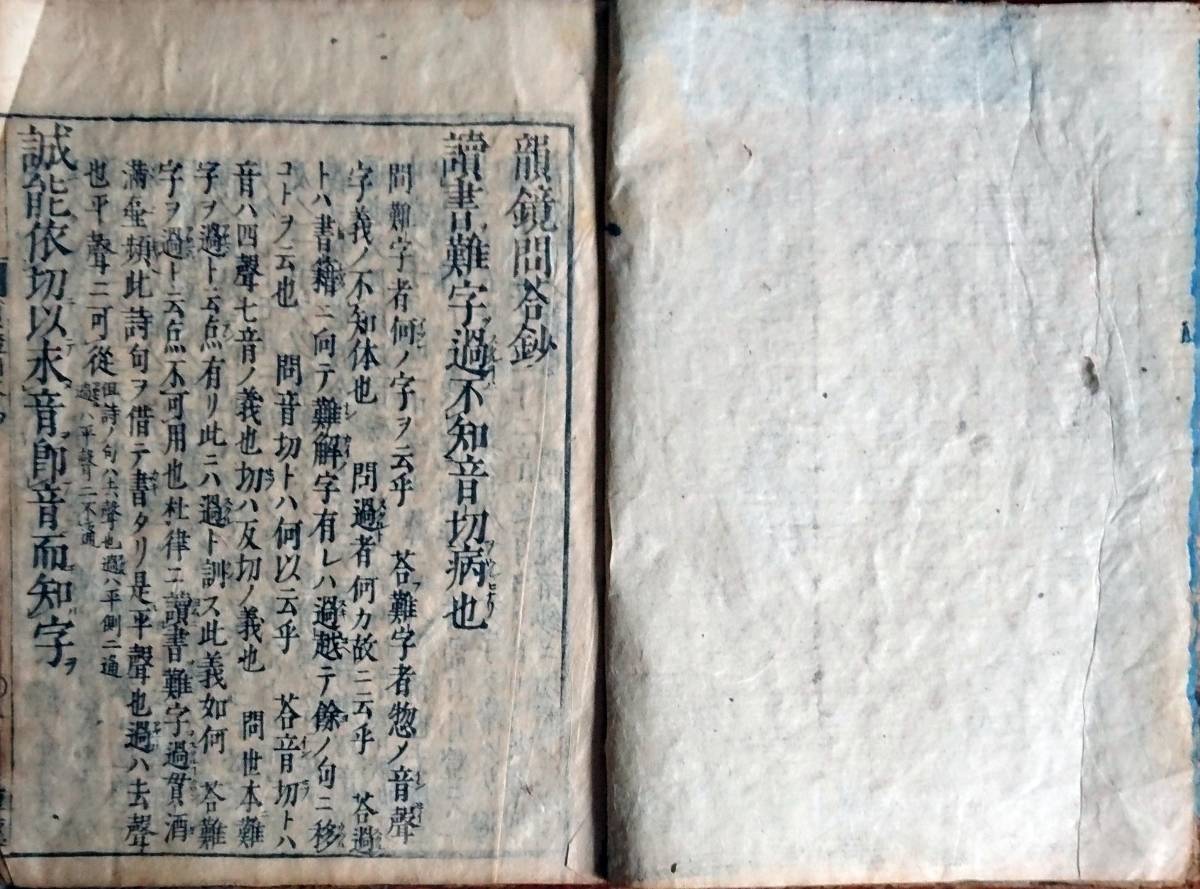 韻鏡問荅鈔
讀書難字過不知音切病也
問難字者何ノ字ヲ云乎　荅難字者惣ノ音聲
字義ノ不知体也　問過者何カ故ニ云乎　荅過
トハ書籍ニ向テ難解字有レハ過越テ餘ノ句ニ移
コトヲ云也　問音切トハ何以云乎　荅音切トハ
音ハ四聲七音ノ義也切ハ反切ノ義也　問世本難
字ヲ過ト云点有リ此ニハ過ト訓ス此義如何　荅難
字ヲ過ト云点不可用也杜律ニ讀書難字過貰酒
満壷頻此詩句ヲ借テ書タリ是平聲也過ハ去聲
也平聲ニ可從
但詩ノ句ハ去聲也過ハ平側ニ通
過ハ平聲ニ不通
誠能依切以求音即音而知字ヲ